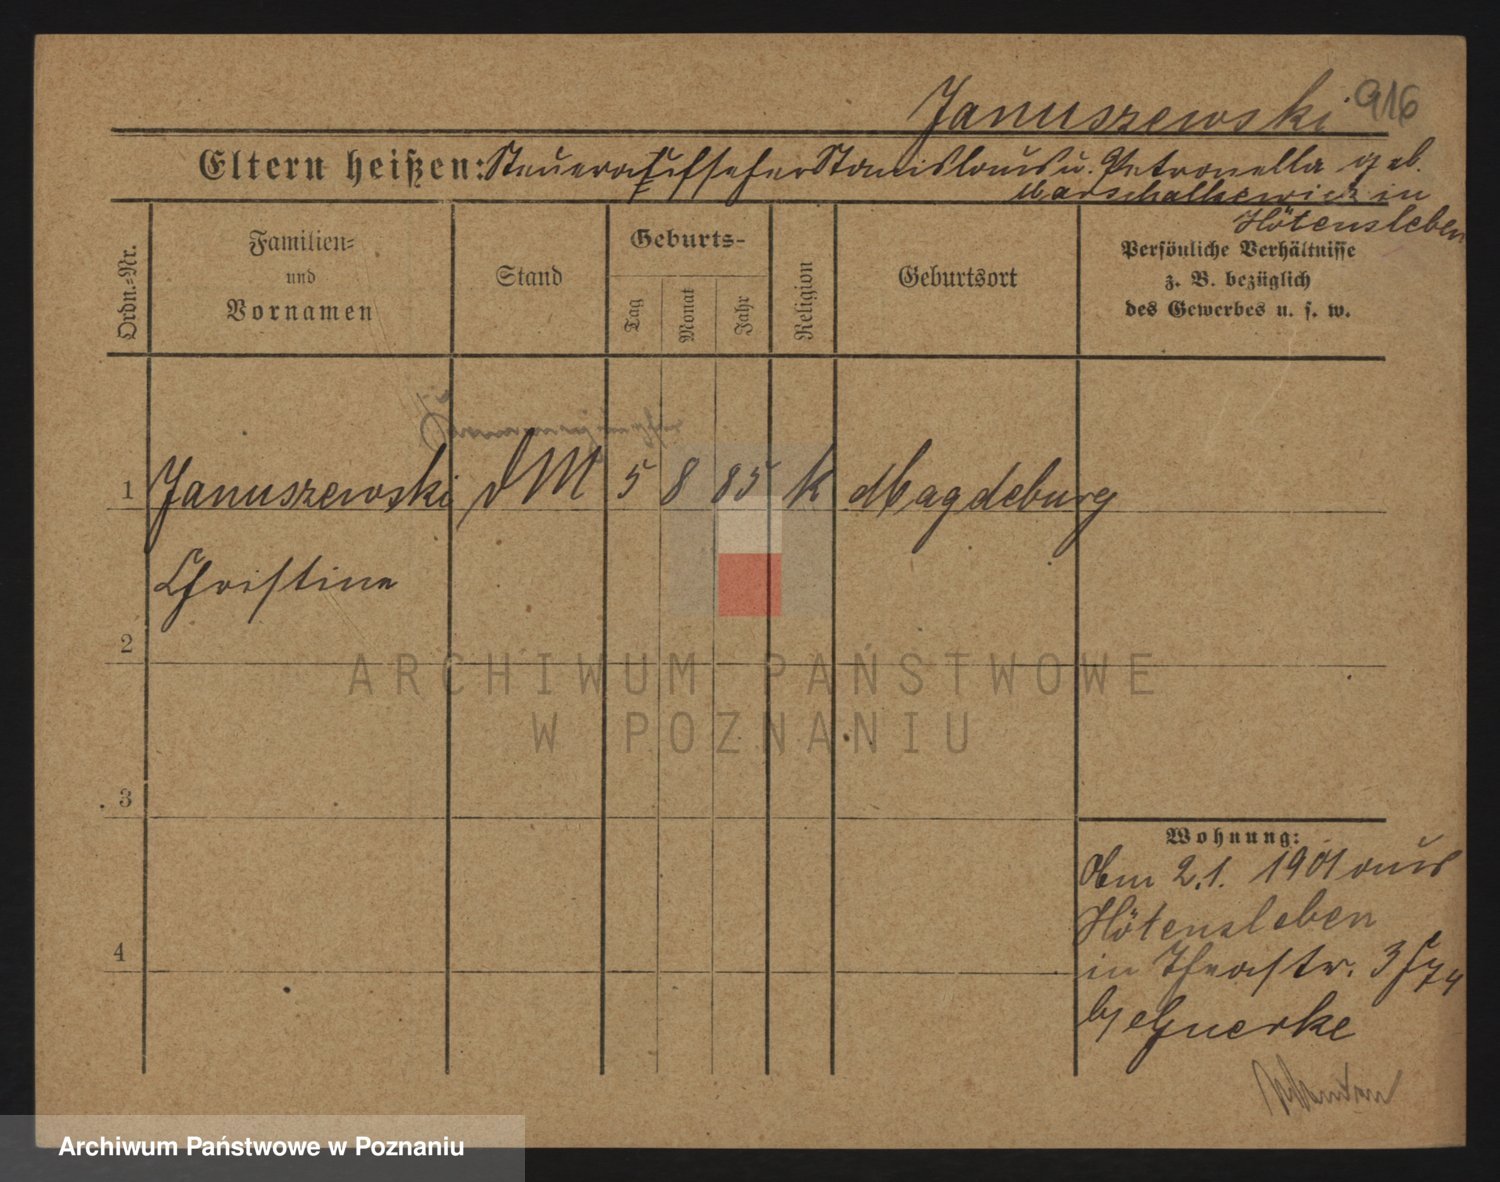 Januszewski 916
Eltern heißen: Steueraufseher Stanislaus u. Petronella geb.
Marschalkewicz in
Hötensleben
Ordn.-Nr.
Familien-
und
Vornamen
Stand
Geburts-
Tag
Monat
Jahr
Religion
Geburtsort
Persönliche Verhältnisse
z. B. bezüglich
des Gewerbes u. s. w.
1 Januszewski DM 5 8 85 k Magdeburg
Christine
2
ARCHIWUM PAŃSTWOWE
W POZNANIU
3
Wohnung:
Am 2.1. 1901 aus
Hötensleben
4
in Theastr. 3
by Guerke
Archiwum Państwowe w Poznaniu